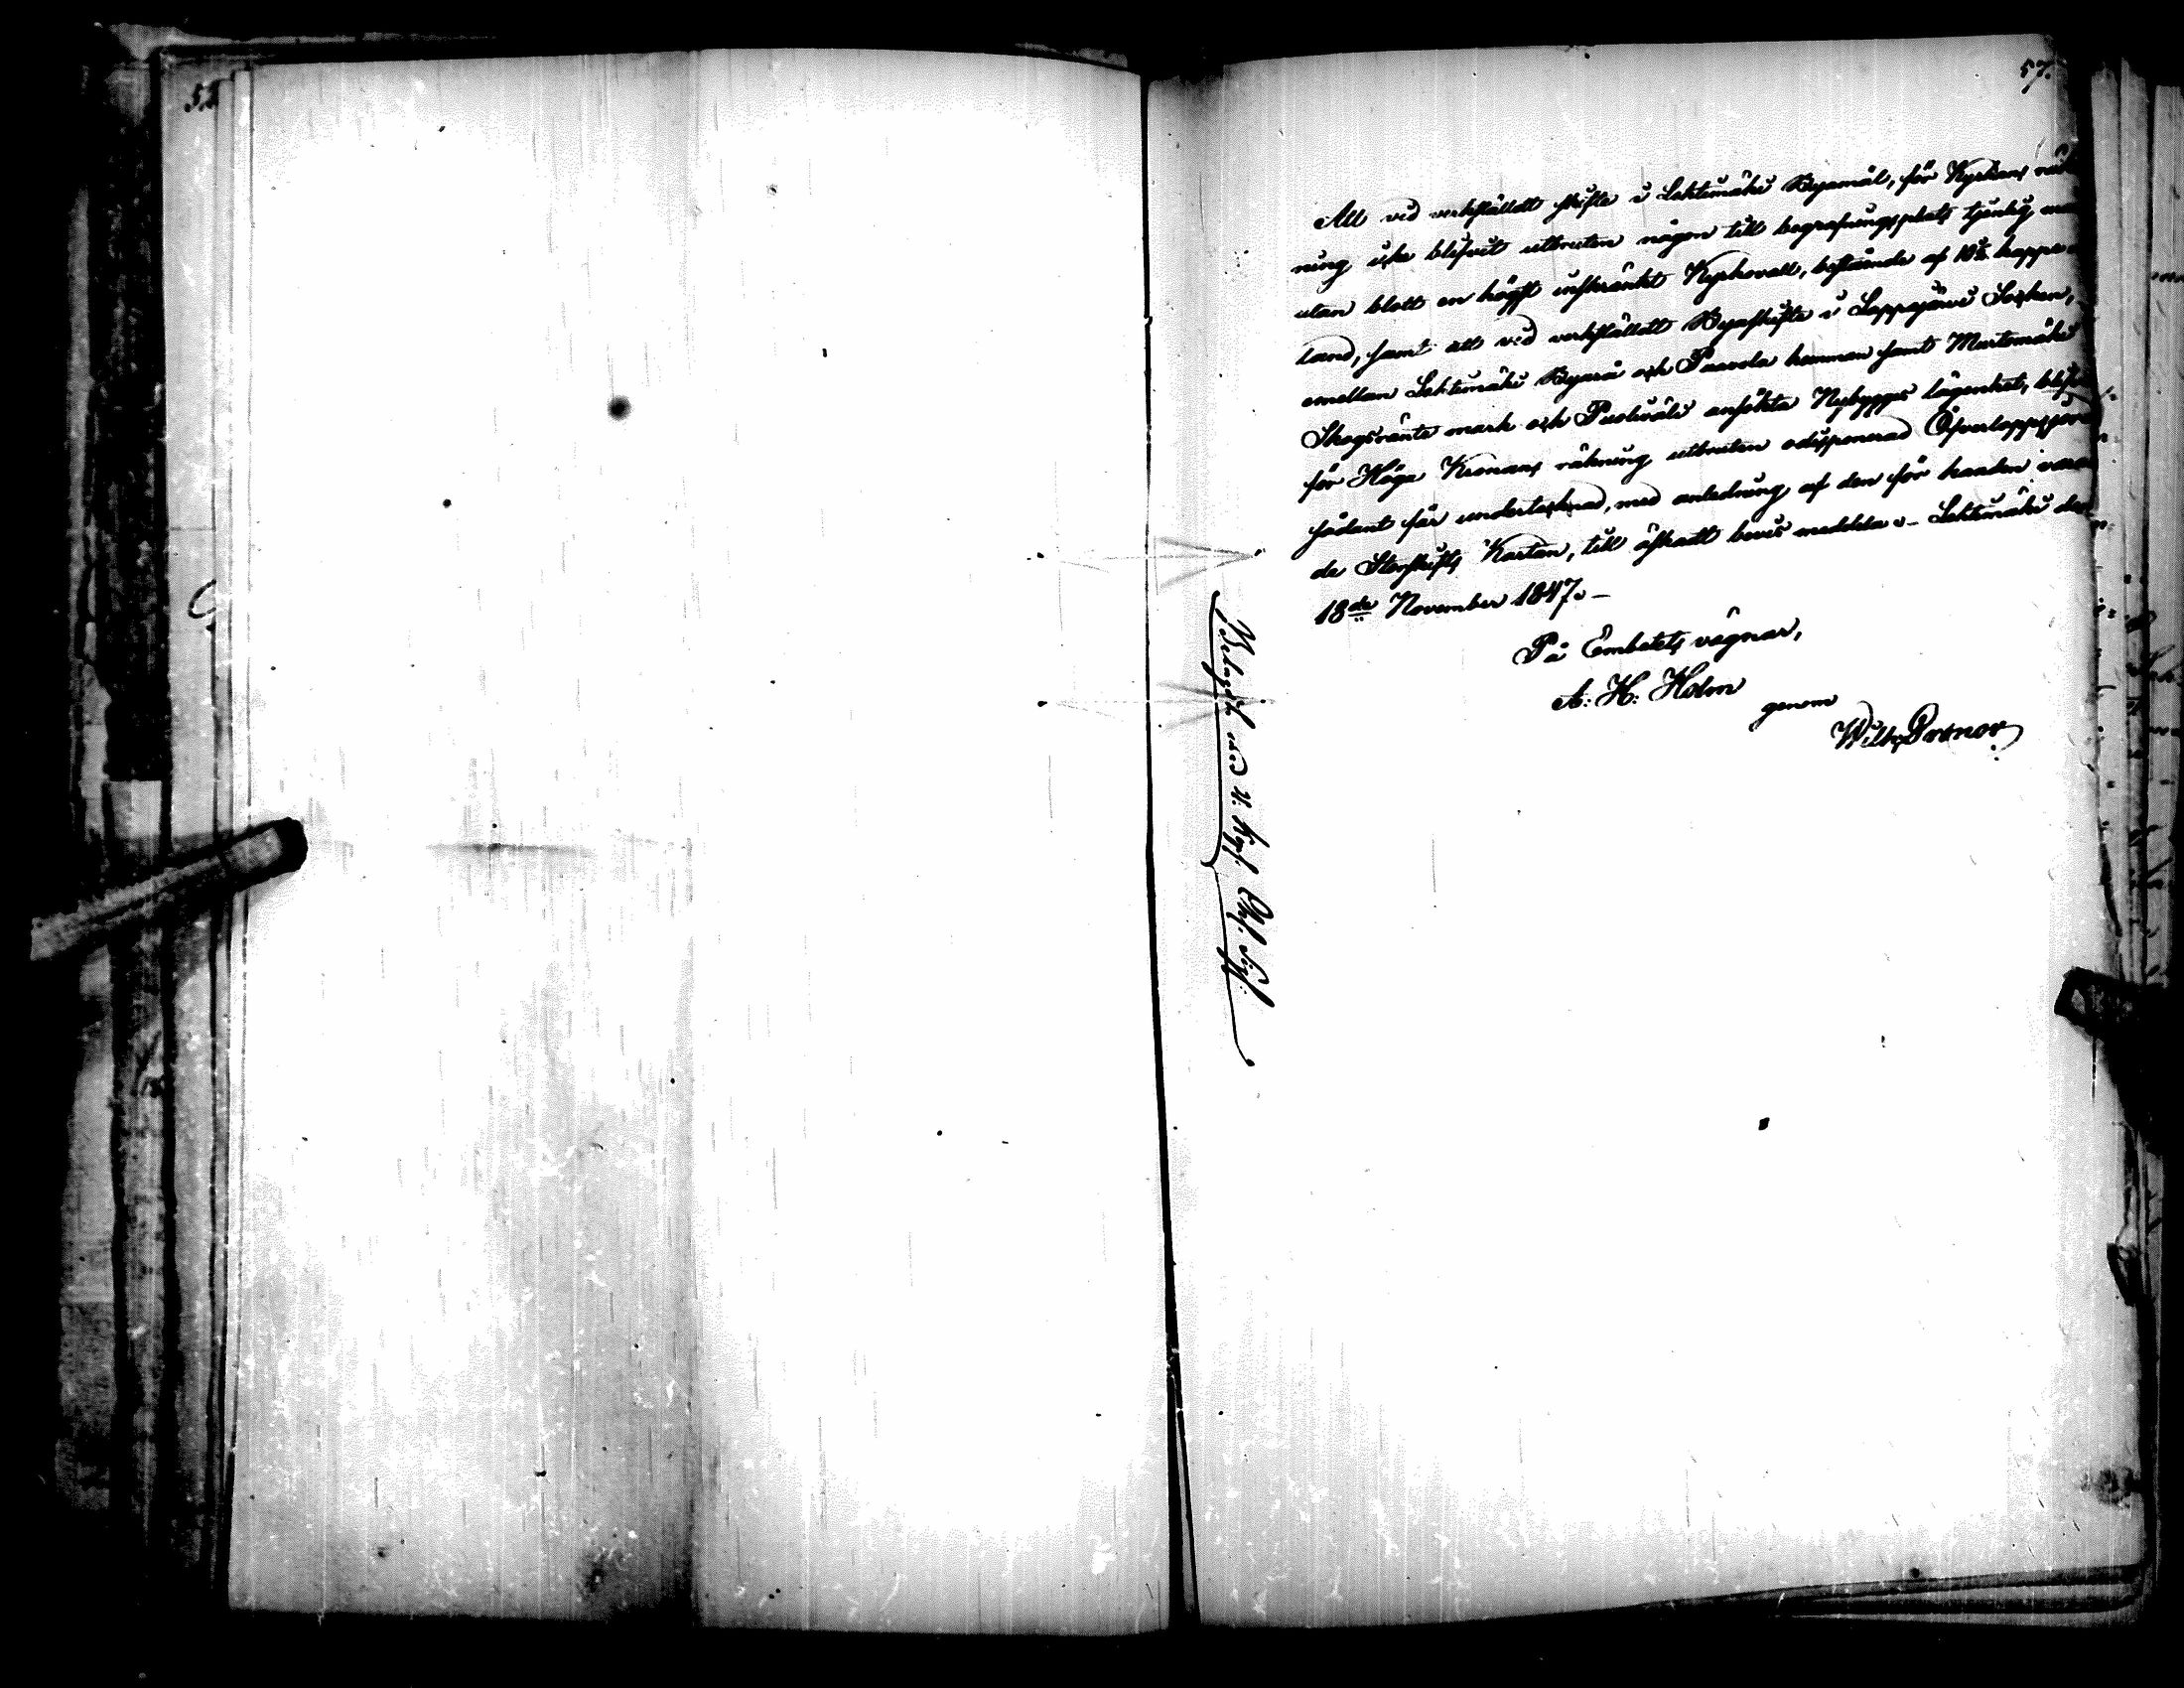 57.
Att vid verkställdt skifte i Lehtimäki Byamål, för Kyrkans räk
ning icke blifvit utbruten någon till begrafningsplats tjenlig mark
utan blott en högst inskränkt Kyrkovall, bestående af 10½ kappe
land, samt att vid verkställdt Byaskifte i Lappajärvi Socken,
emellan Lehtimäki Byarå och Paavola hemman samt Murtomäki
Skogsränte mark och Puolivälï ansökta Nybygges lägenhet, blifvit
för Höga Kronans räkning utbruten odisponerad Öfverloppsjord
sådant får undertecknad, med anledning af den för handen varan
de Storskifts Kartan, till äskadt bevis meddela. Lehtimäki den
18de November 1847. –
På Embetets vägnar,
A: H: Holm
genom